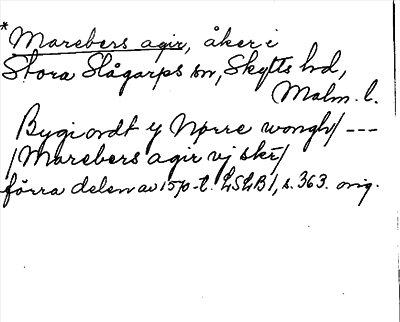 * Marebers agir, åker i
Stora Slågarps sn, Skytts hd,
Malm. l.
Bygiordt y Nørre wongh/ ---
/Marebers agir vj skr/
förra delen av 1570-t. LSLB 1, s. 363. orig.